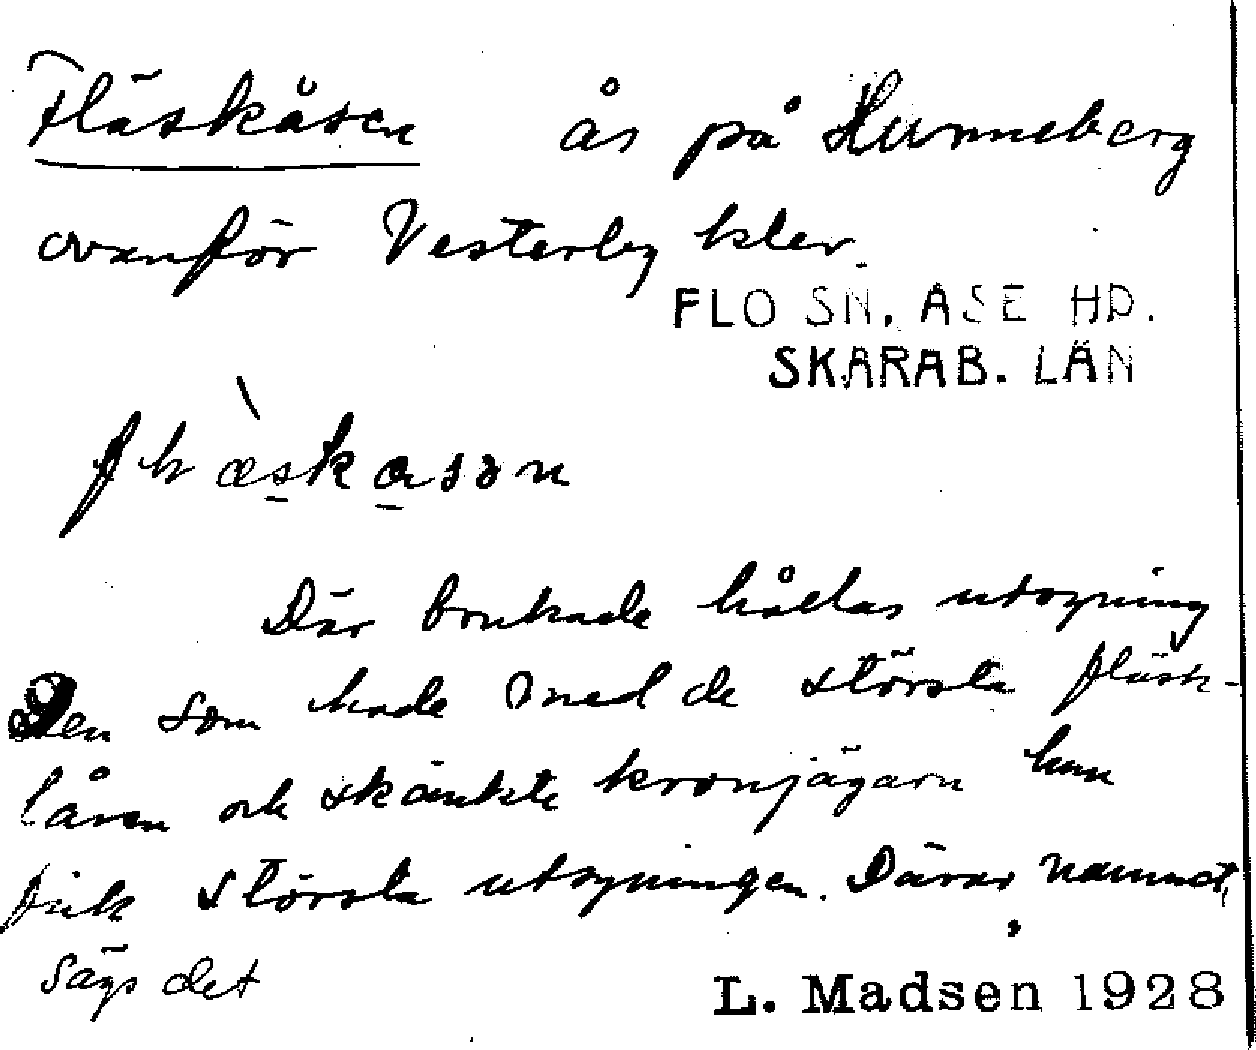 Fläskåsen ås på Hunneberg
ovanför Vesterby klev.
FLO SN. ÅSE HD.
SKARAB. LÄN
Där brukade hållas utsyning
Den som hade med de största fläsk-
låren och skänkte kronjägarn han
fick största utsyningen. Därav namnet,
sägs det
L. Madsen 1928